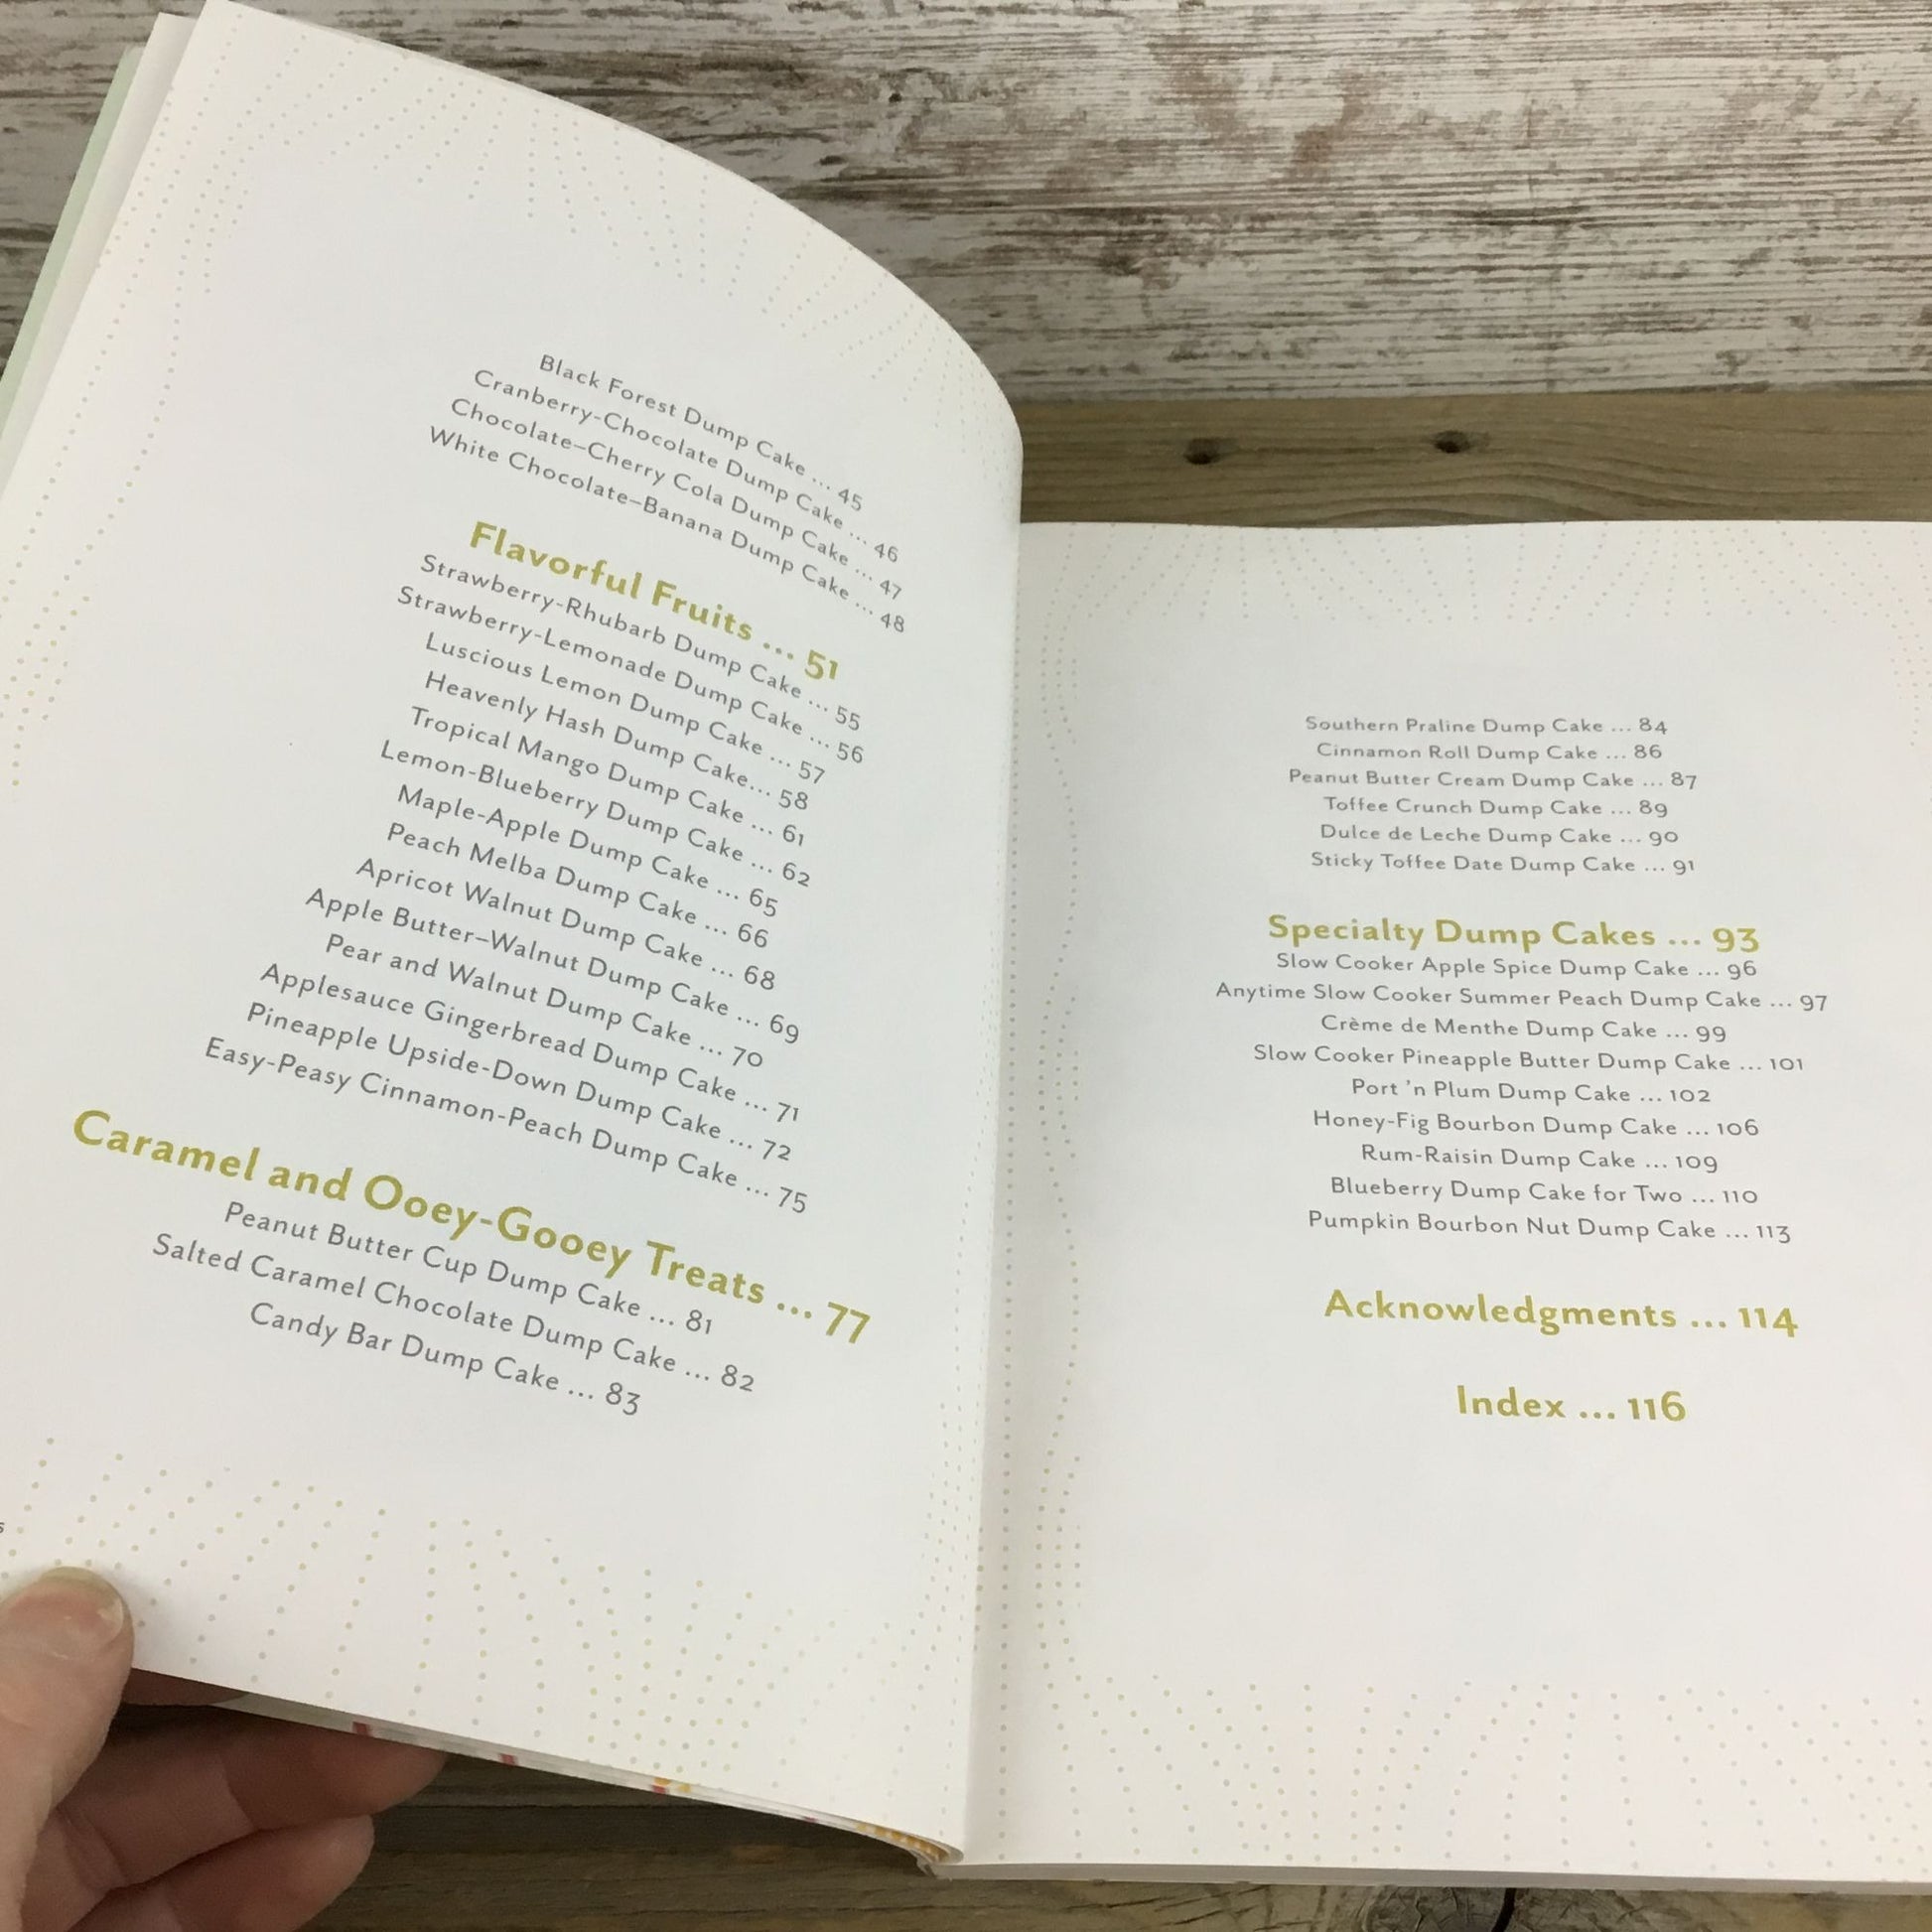 Black Forest Dump Cake ... 45
Cranberry-Chocolate Dump Cake ... 46
Chocolate–Cherry Cola Dump Cake ... 47
White Chocolate–Banana Dump Cake ... 48
Flavorful Fruits ... 51
Strawberry-Rhubarb Dump Cake ... 55
Strawberry-Lemonade Dump Cake ... 56
Luscious Lemon Dump Cake ... 57
Heavenly Hash Dump Cake... 58
Tropical Mango Dump Cake ... 61
Lemon-Blueberry Dump Cake ... 62
Maple-Apple Dump Cake ... 65
Peach Melba Dump Cake ... 66
Apricot Walnut Dump Cake ... 68
Apple Butter–Walnut Dump Cake ... 69
Pear and Walnut Dump Cake ... 70
Applesauce Gingerbread Dump Cake ... 71
Pineapple Upside-Down Dump Cake ... 72
Easy-Peasy Cinnamon-Peach Dump Cake ... 75
Caramel and Ooey-Gooey Treats ... 77
Peanut Butter Cup Dump Cake ... 81
Salted Caramel Chocolate Dump Cake ... 82
Candy Bar Dump Cake ... 83
Southern Praline Dump Cake ... 84
Cinnamon Roll Dump Cake ... 86
Peanut Butter Cream Dump Cake ... 87
Toffee Crunch Dump Cake ... 89
Dulce de Leche Dump Cake ... 90
Sticky Toffee Date Dump Cake ... 91
Specialty Dump Cakes ... 93
Slow Cooker Apple Spice Dump Cake ... 96
Anytime Slow Cooker Summer Peach Dump Cake ... 97
Crème de Menthe Dump Cake ... 99
Slow Cooker Pineapple Butter Dump Cake ... 101
Port ’n Plum Dump Cake ... 102
Honey-Fig Bourbon Dump Cake ... 106
Rum-Raisin Dump Cake ... 109
Blueberry Dump Cake for Two ... 110
Pumpkin Bourbon Nut Dump Cake ... 113
Acknowledgments ... 114
Index ... 116